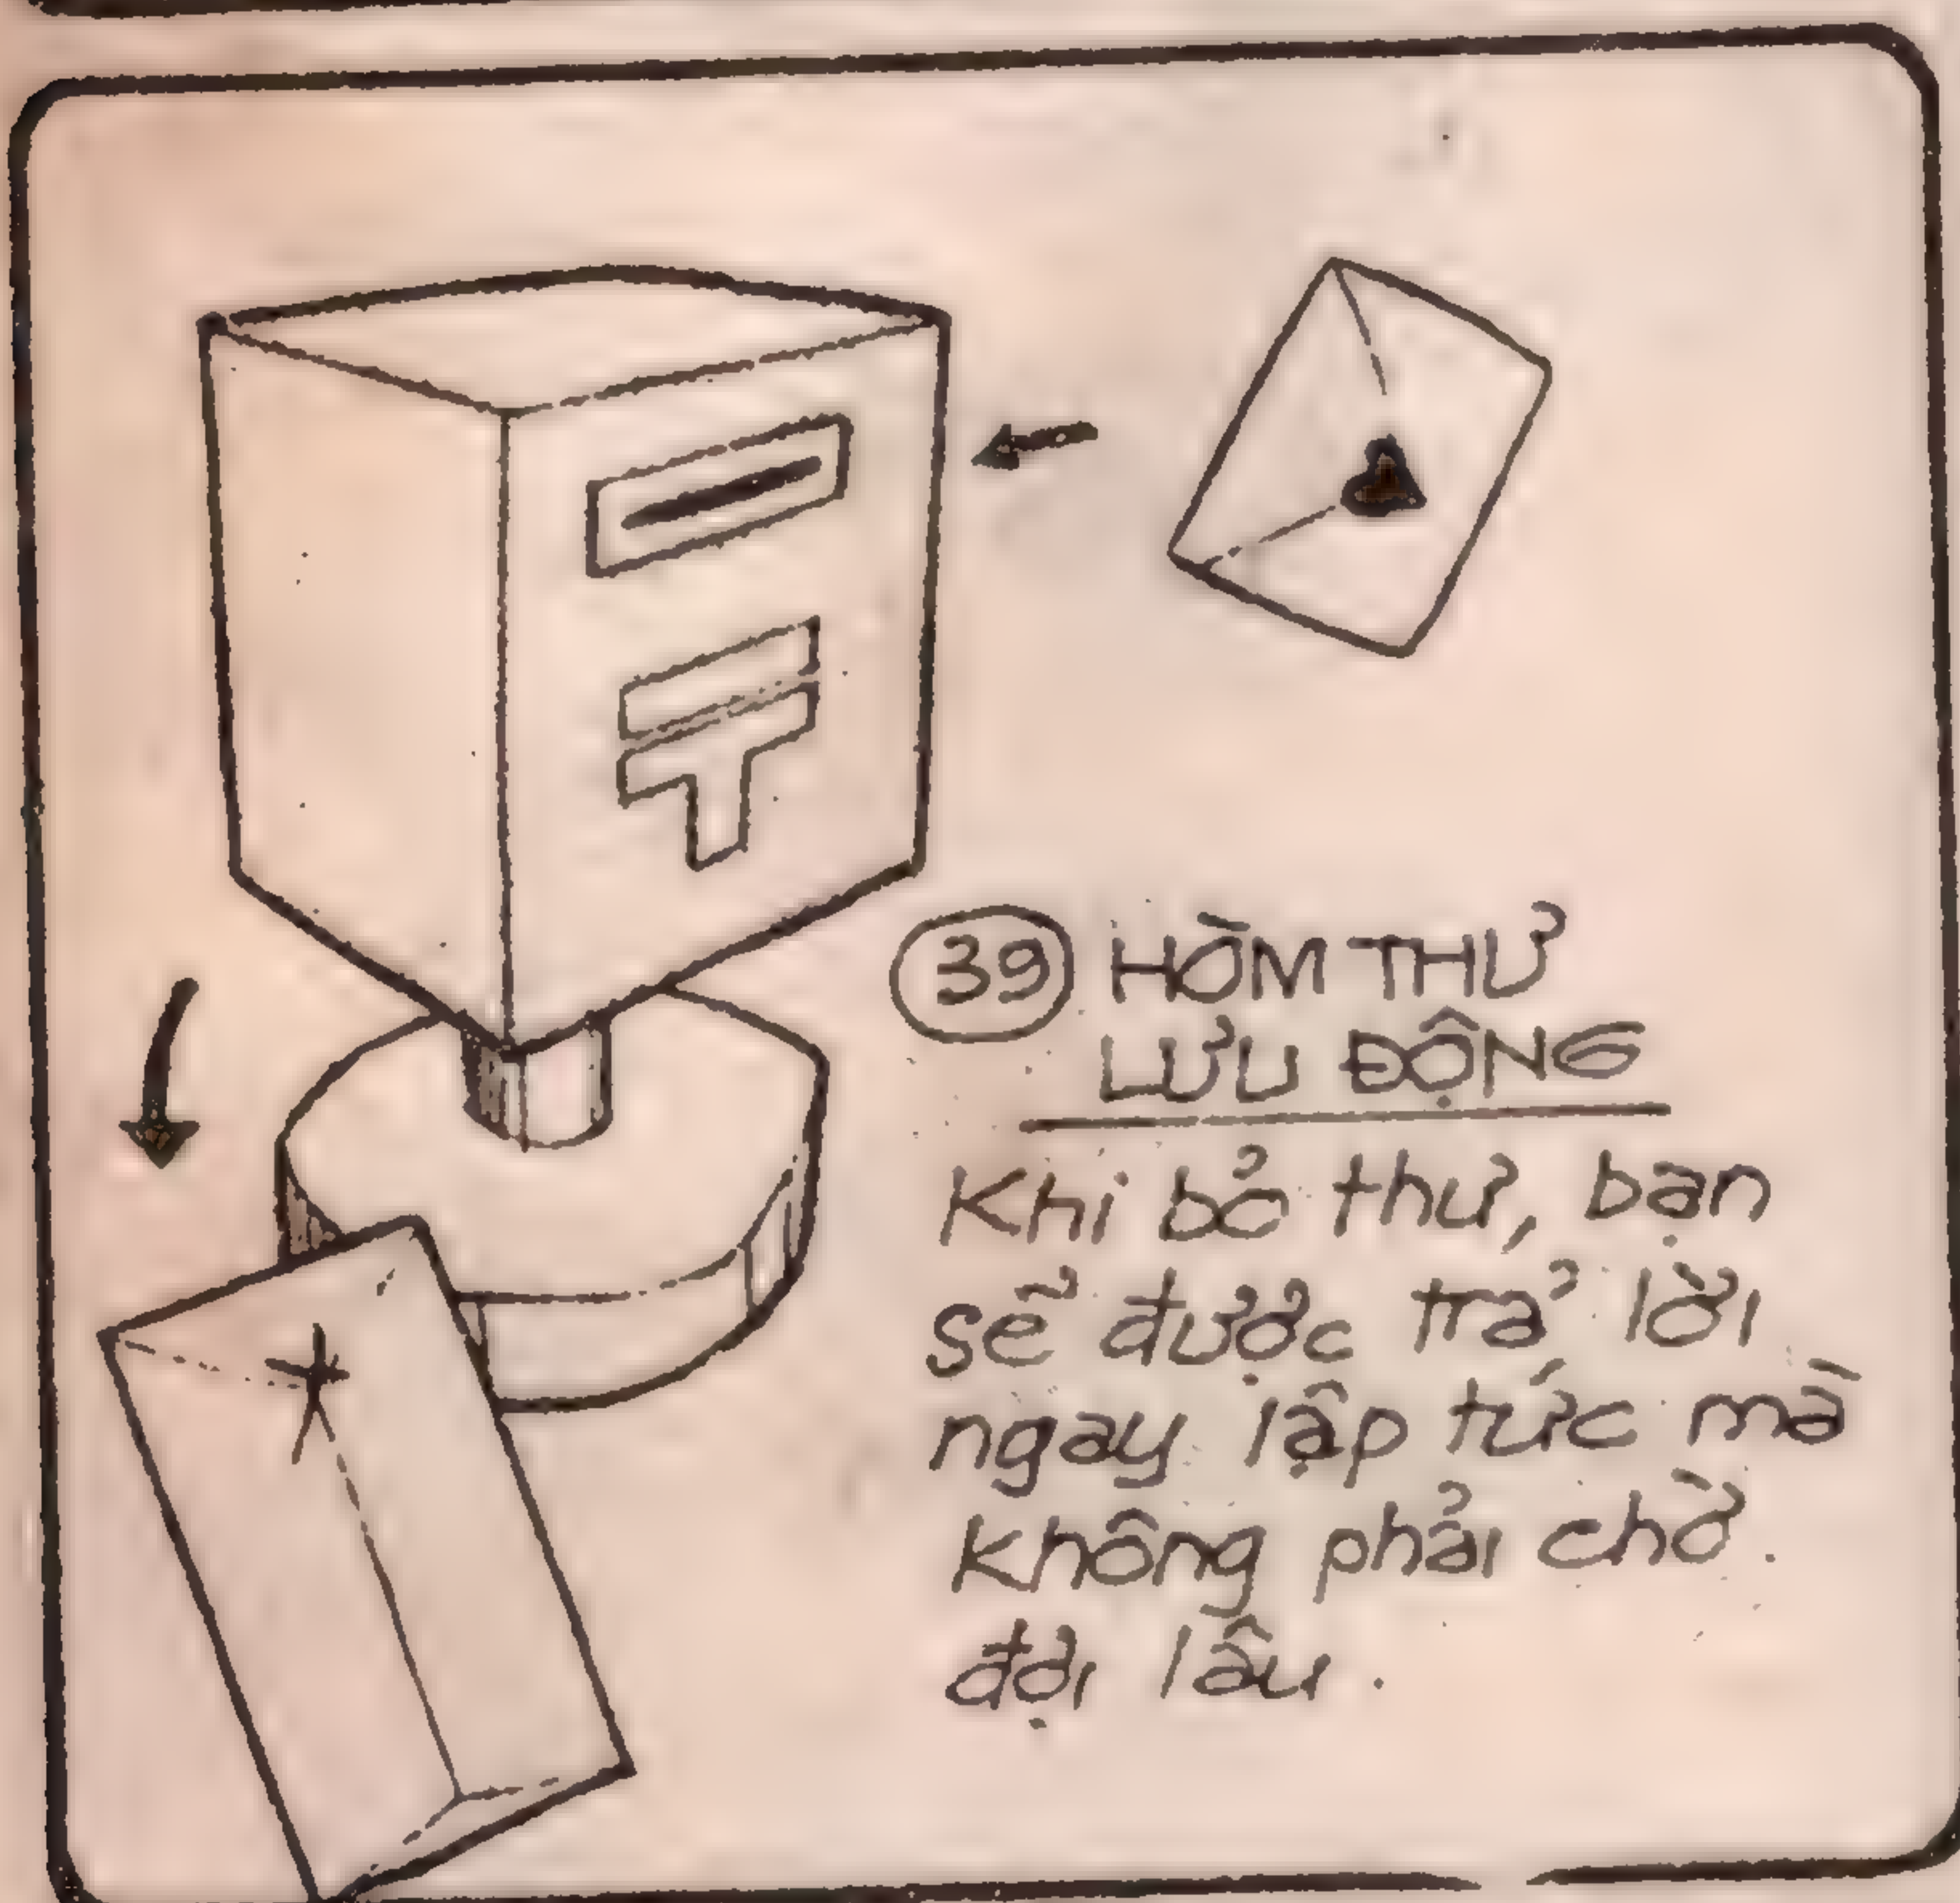 〒
39 HÒM THƯ
LƯU ĐỘNG
Khi bỏ thư, bạn
sẽ được trả lời
ngay lập tức mà
không phải chờ
đợi lâu.